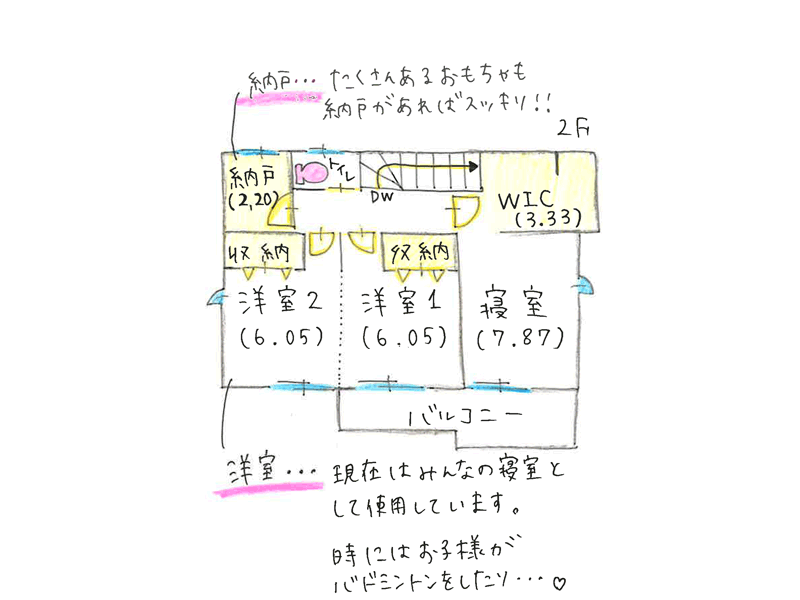 納戸・・・ たくさんあるおもちゃも
納戸があればスッキリ!!
2F
納戸
(2,20)
トイレ
DW
WIC
(3.33)
収納
収納
洋室2
(6.05)
洋室1
(6.05)
寝室
(7.87)
バルコニー
洋室・・・ 現在はみんなの寝室と
して使用しています。
時にはお子様が
バドミントンをしたり・・・♡